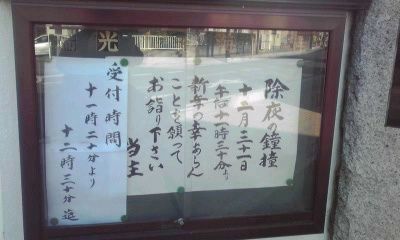 光
除夜の鐘撞
十二月三十一日
午后十一時三十分より
新年の幸あらん
ことを願って
お詣り下さい
当主
受付時間
十一時二十分より
十二時三十分迄